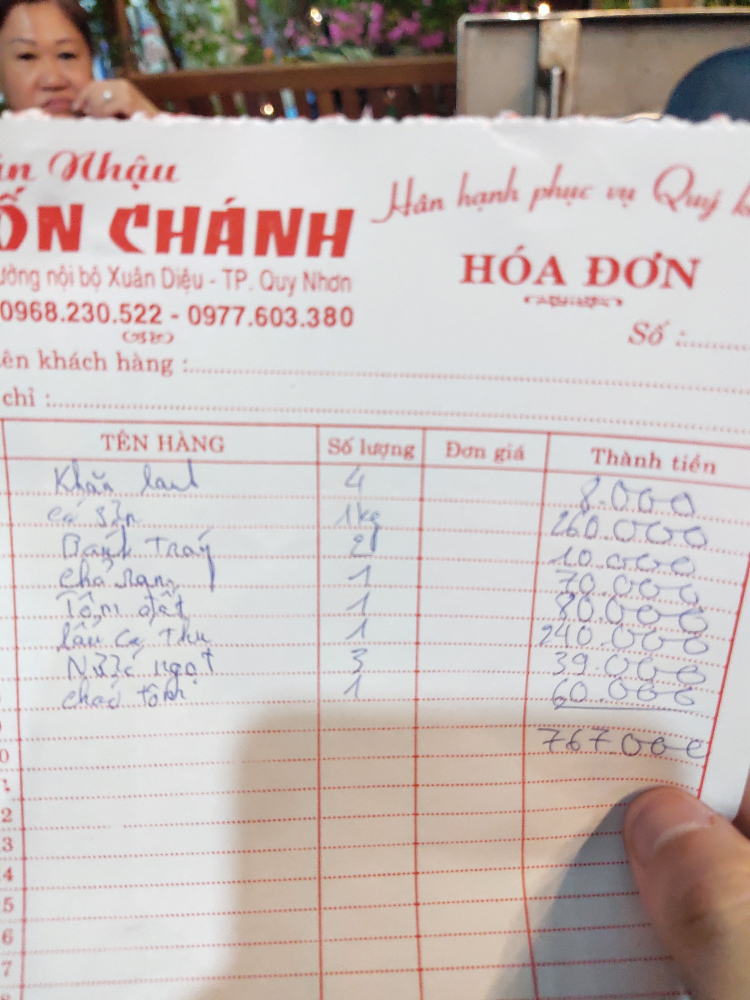 Nhậu
ỐN CHÁNH
ường nội bộ Xuân Diệu - TP. Quy Nhơn
0968.230.522 - 0977.603.380
Hân hạnh phục vụ Quý
HÓA ĐƠN
Số :
ên khách hàng :
chỉ :
TÊN HÀNG Số lượng Đơn giá Thành tiền
Khăn lạnh 4 8.000
1kg 260.000
Bánh Tráng 2 10.000
Chả 1 70.000
Tôm đất 1 80.000
lẩu cá thu 1 240.000
Nước ngọt 3 39.000
cháo tôm 1 60.000
767.000
0
2
3
4
5
6
7